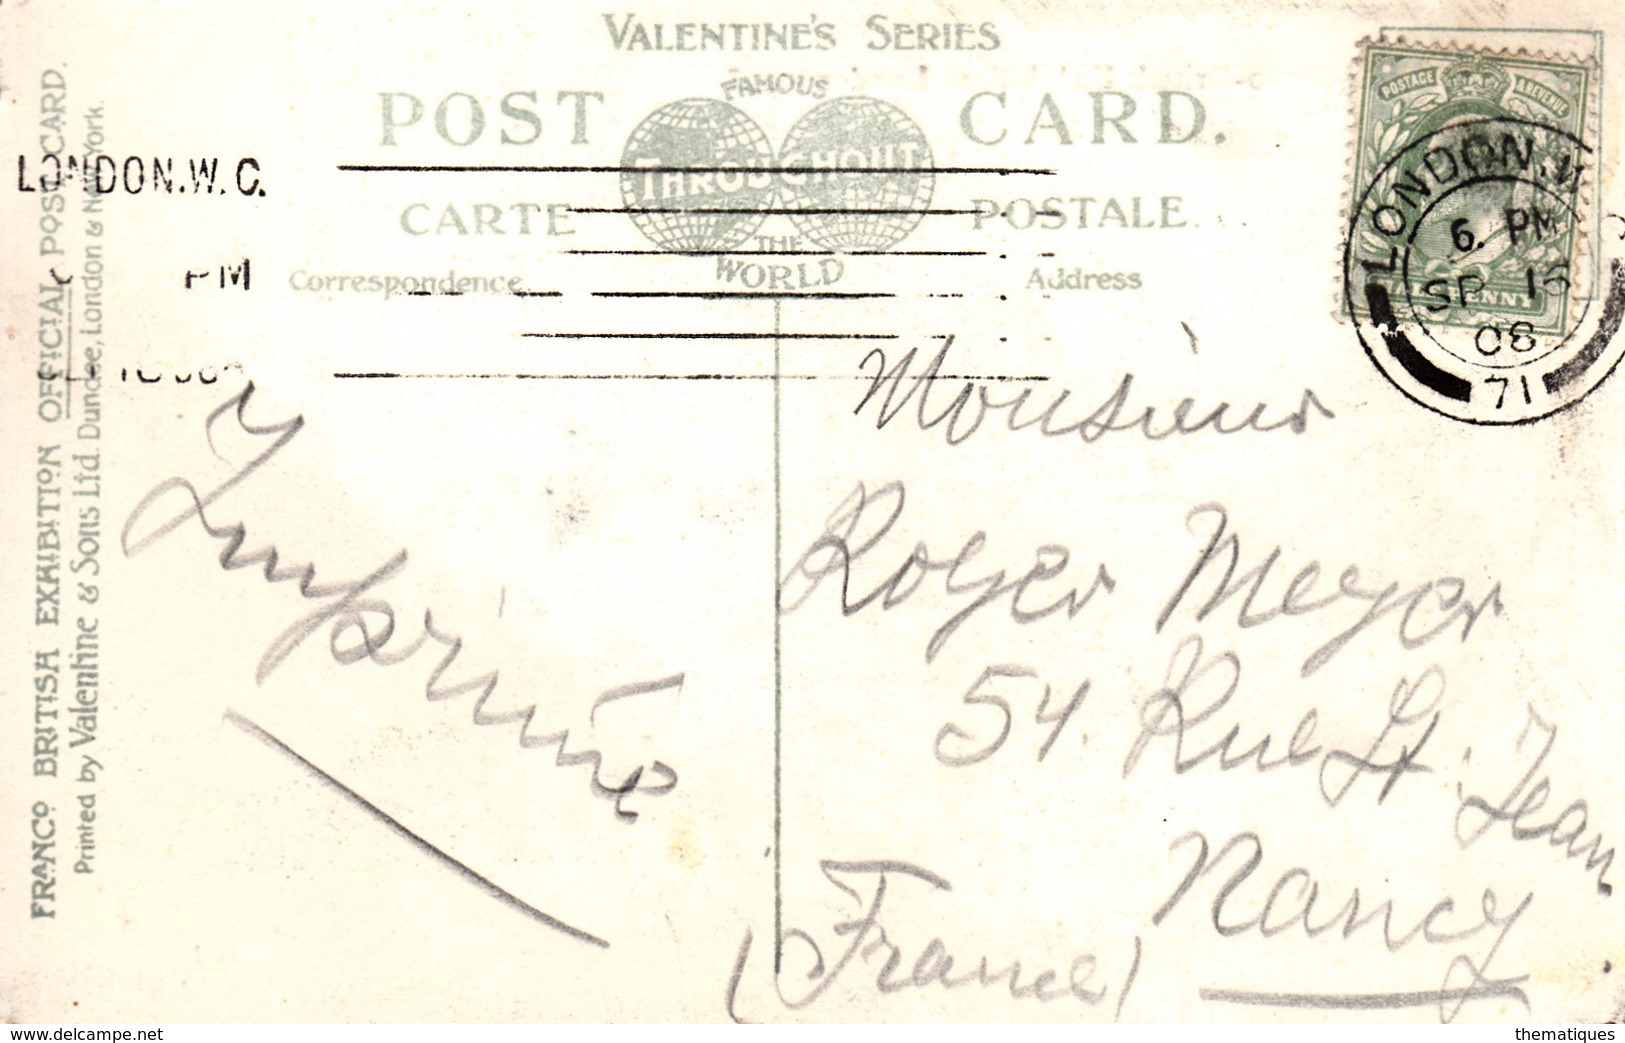 VALENTINE'S SERIES
POST CARD.
FAMOUS
THROUGHOUT
THE
WORLD
CARTE POSTALE.
Correspondence.
Address
FRANCO BRITISH EXHIBITION OFFICIAL POSTCARD.
Printed by Valentine & Sons Ltd. Dundee, London & New York.
LONDON.W.C.
PM
POSTAGE & REVENUE
PENNY
LONDON.W
6. PM
SP 15
08
71
Imprimé
Monsieur
Roger Meyer
54 Rue St. Jean
Nancy
(France)
https://www.delcampe.net
thematiques